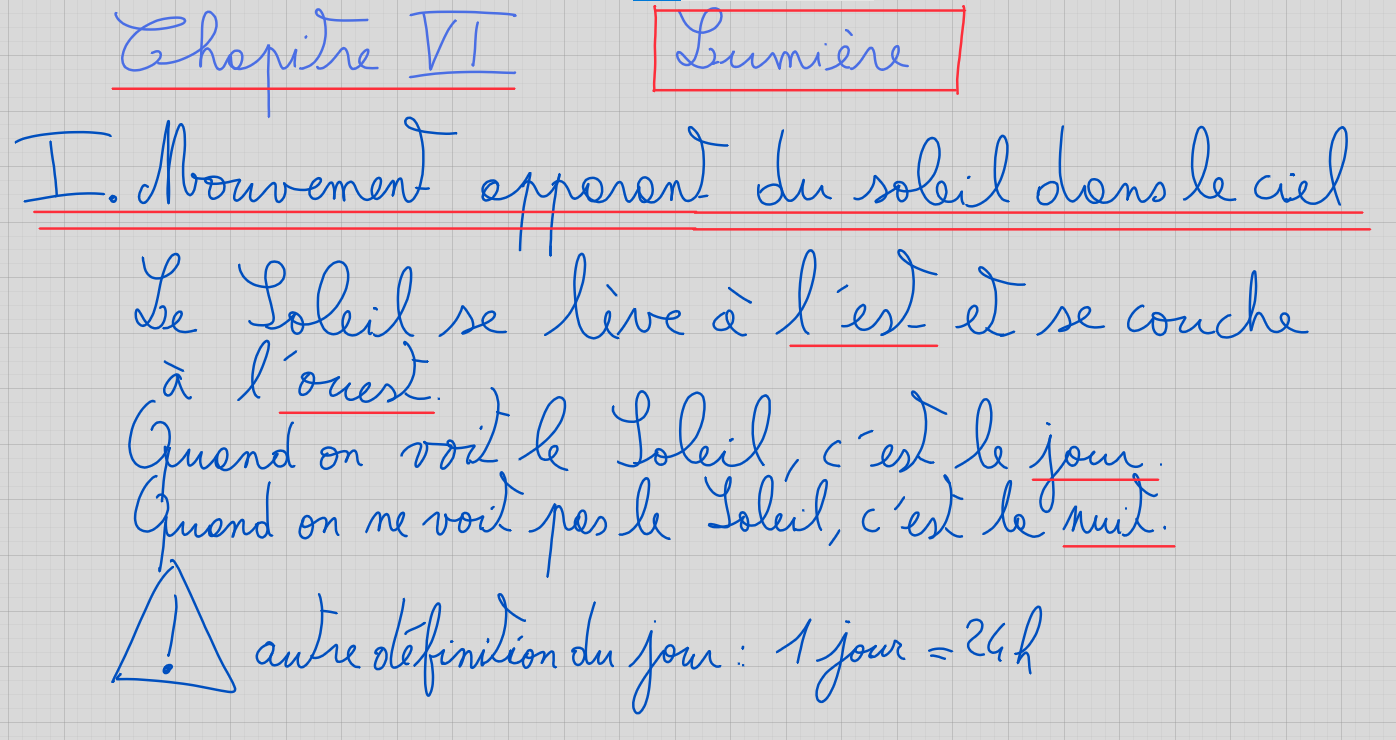 Chapitre VI Lumière
I. Mouvement apparant du soleil dans le ciel
Le Soleil se lève à l'est et se couche
à l'ouest.
Quand on voit le Soleil, c'est le jour.
Quand on ne voit pas le Soleil, c'est la nuit.
! autre définition du jour : 1 jour = 24h